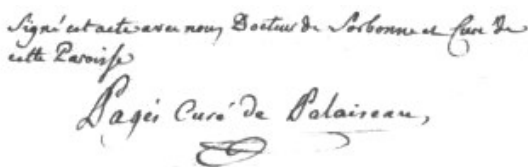 Signé cet acte avec nous, Docteur de Sorbonne et Curé de
cette Paroisse
Pagés Curé de Palaiseau,